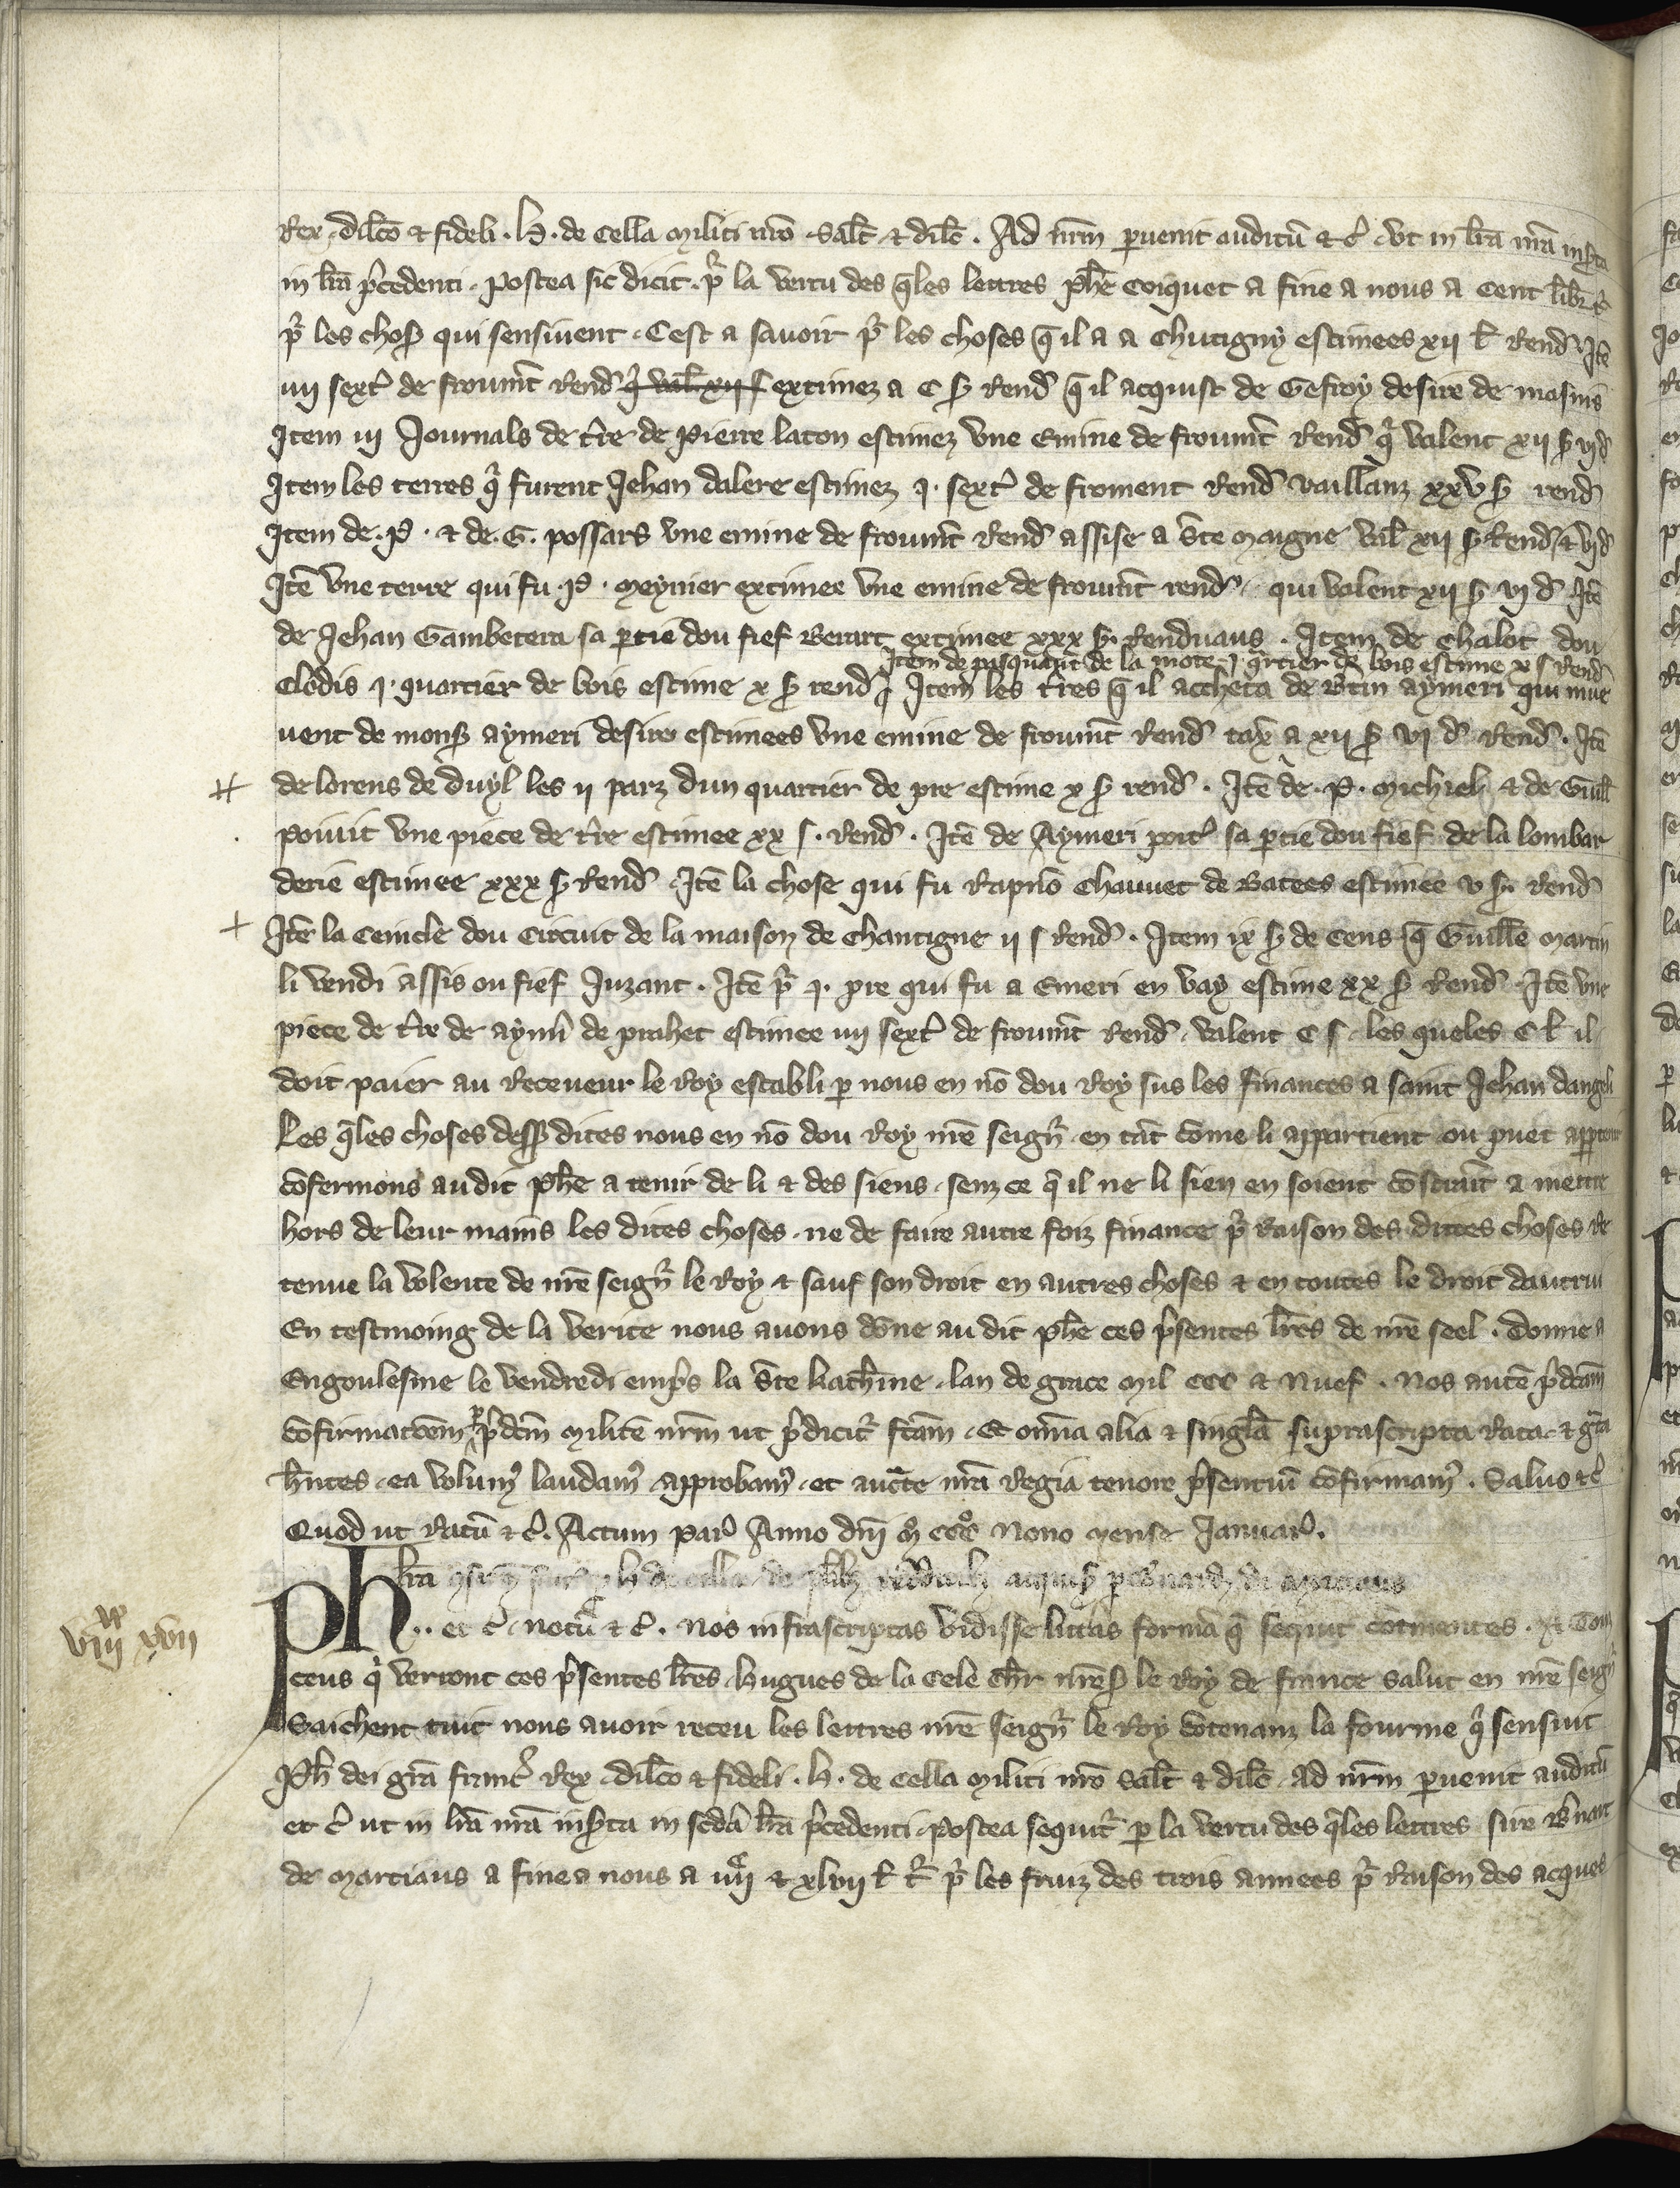 Rex dilco & fideli . H . de Cella militi nro salt & dilc . Ad nrm peruenit auditu & c ut in lra nra inserta
in lra precedenti . Postea sic dicit . pr la vertu des qles lettres phe Coiquet a fine a nous a Cent libr t
pr les chos qui sensiuent . Cest a sauoir pr les choses q il a a Chutigny estimees xii l Rend Ite
iiii sext de froumt Rend q val xii s extimez a C s Rend q il acquist de Gefroy desire de masins
Item iii Journals de tre de Pierre laton estimez vne Emine de froumt Rend q valent xii s vi d
Item les terres q furent Jehan dalere estimez i . sext de froment Rend vaillanz xxv s rend
Item de . P . & de . G . possars vne emine de froumt Rend assise a ste maigne val xii s Rend & vi d
Ite vne terre qui fu . P . Meynier extimee vne emine de froumt rend qui valent xii s vi d Ite
de Jehan Gambetera sa ptie dou fief Berart extimee xxx s . Renduaus . Item de Chalot dou
Item de pasquaut de la mote i . qrtier de bois estime x s Rend
Clodis i . quartier de bois estime x s rend Item les tres q il accheta de Btin aymeri qui mue
uent de mons aymeri desire estimees vne emine de froumt Rend tax a xii s vi d Rend . Ite
de lorens de duyl les ii parz dun quartier de pre estime x s rend . Ite de . P . Michiel & de Guill
poiuit vne piece de tre estimee xx s . Rend . Ite de Aymeri port sa ptie dou fief de la lombar
derie estimee xxx s Rend Ite la chose qui fu Rapno Chauuet de Batees estimee v s Rend
Ite la Cenicle dou Circuit de la maison de Chantigne ii s Rend . Item ix s de Cens q Guille martin
li vendi assis ou fief Juzant . Ite pr i . pre qui fu a Emeri en vay estime xx s Rend Ite vne
piece de tre de aymi de prahet estimee iiii sext de froumt Rend valent C s les queles C l il
doit paier au Receueur le Roy establi p nous en no dou Roy sus les finances a saint Jehan dangeli
Les qles choses dess dites nous en no dou Roy nre seign en tat come li appartient ou puet appartenir
cofermons au dit phe a tenir de li & des siens senz ce q il ne li sien en soient costraint a mettre
hors de leur mains les dites choses ne de faire autre foiz finance pr Raison des dittes choses Re
tenue la volente de nre seign le Roy & sauf son droit en autres choses & en toutes le droit dautrui
En tesmoing de la verite nous auons done au dit phe ces psentes lres de nre seel . Donne a
Engoulesme le vendredi emps la ste kathine lan de grace mil CCC & Nuef . Nos aute pdcam
cofirmatoem p pdcm milite nrm ut pdicit fcam . Et omia alia & singla suprascripta Rata & gta
hntes ea volum laudam approbam et aucte nra Regia tenore psentiu cofirmam . Saluo & c
Quod ut Ratu & c . Actum par Anno dni mo CCCo Nono mense Januar .
lra
Ph .. et c notu & c . Nos infrascriptas vidisse littas forma q sequit cotinentes . A Touz
ceus q verront ces psentes lres hugues de la Cele chr nres le Roy de france salut en nre seign
Saichent tuit nous auoir receu les lettres nre seign le Roy cotenanz la fourme q sensiut
Ph dei gra franc Rex dilco & fideli . h . de Cella militi nro salt & dilc Ad nrm peruenit auditu
et c ut in lra nra inserta in scda lra pcedenti . Postea sequit p la vertu des qles lettres sire Bnart
de Martiaus a fine a nous a iiii & xlvii l t pr les fruiz des trois annees pr Raison des acques
viii xx xvii